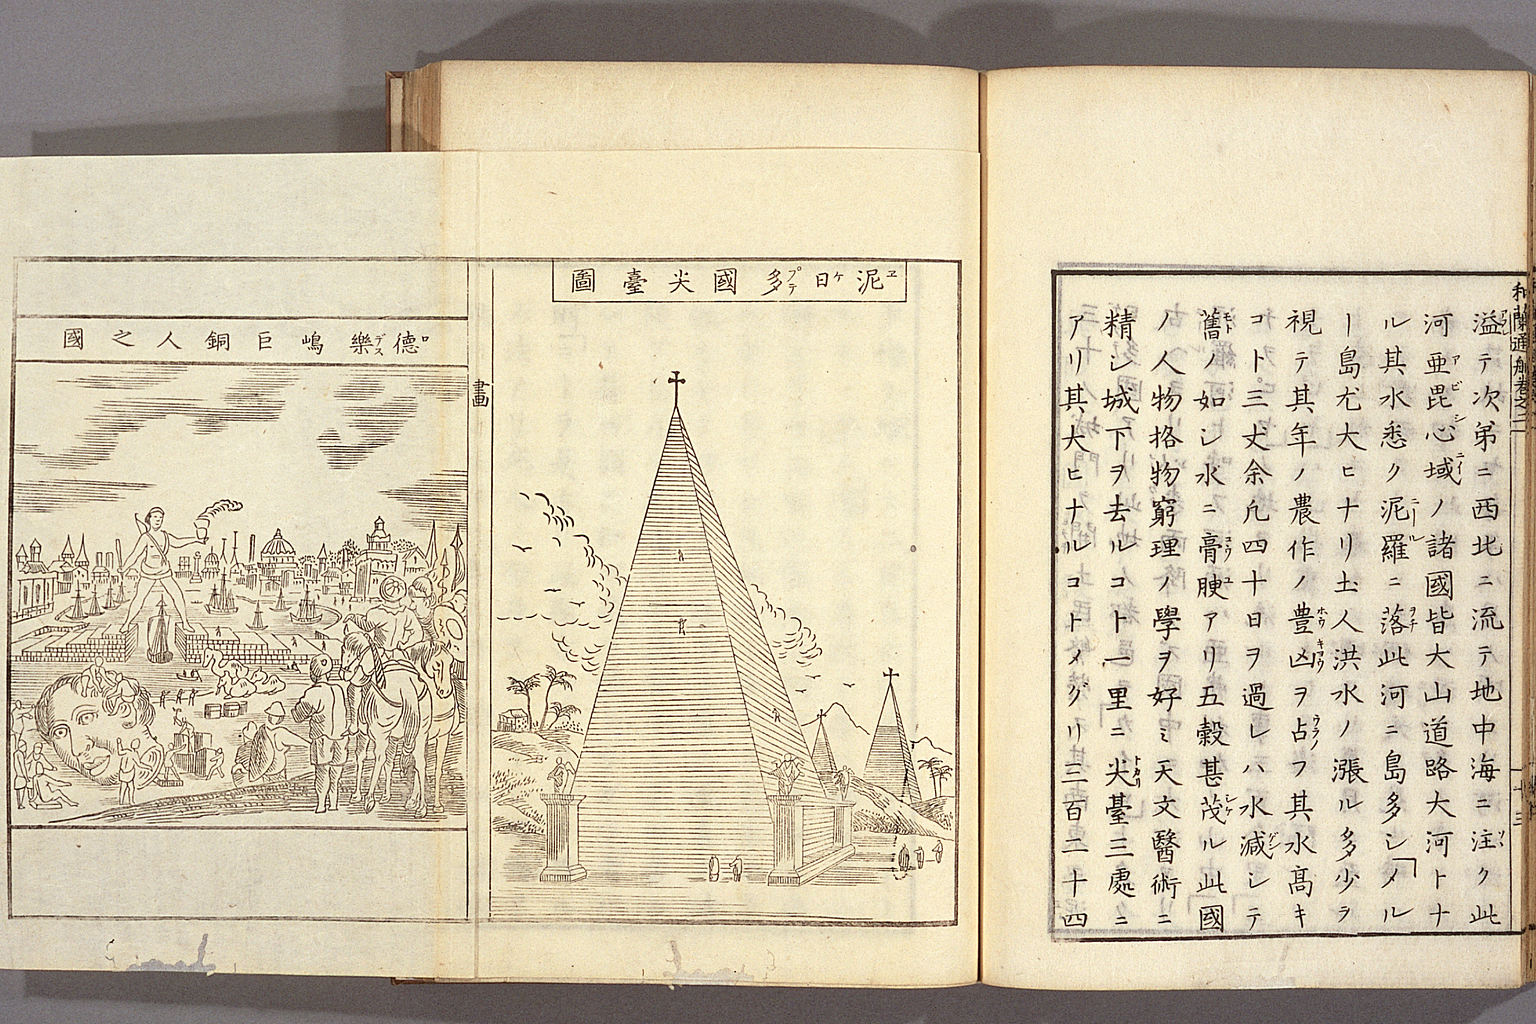 和蘭通舶卷之二
溢テ次第ニ西北ニ流テ地中海ニ注ク此
河亜毘心域ノ諸國皆大山道路大河トナ
ル其水悉ク泥羅ニ落此河ニ島多シメル
ー島尤大ヒナリ土人洪水ノ漲ル多少ラ
視テ其年ノ農作ノ豊凶ヲ占フ其水高キ
コト三丈余凡四十日ヲ過レハ水減シテ
舊ノ如シ水ニ膏腴アリ五穀甚茂ル此國
ノ人物格物窮理ノ學ヲ好ミ天文醫術ニ
精シ城下ヲ去ルコト一里ニ尖臺三處ニ
アリ其大ヒナルコトメグリ三百二十四
泥日多國尖臺圖
畫
德樂嶋巨銅人之國